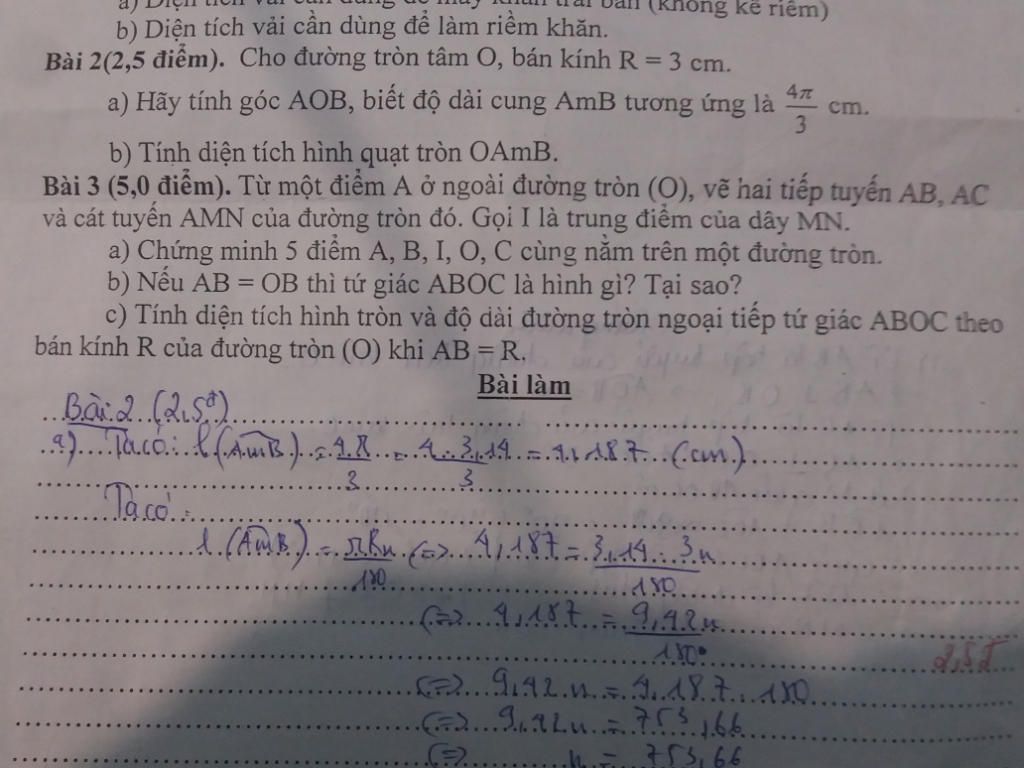 a) Diện tích vải cần dùng để may khăn trải bàn (không kể riềm)
b) Diện tích vải cần dùng để làm riềm khăn.
Bài 2(2,5 điểm). Cho đường tròn tâm O, bán kính R = 3 cm.
a) Hãy tính góc AOB, biết độ dài cung AmB tương ứng là 4π/3 cm.
b) Tính diện tích hình quạt tròn OAmB.
Bài 3 (5,0 điểm). Từ một điểm A ở ngoài đường tròn (O), vẽ hai tiếp tuyến AB, AC
và cát tuyến AMN của đường tròn đó. Gọi I là trung điểm của dây MN.
a) Chứng minh 5 điểm A, B, I, O, C cùng nằm trên một đường tròn.
b) Nếu AB = OB thì tứ giác ABOC là hình gì? Tại sao?
c) Tính diện tích hình tròn và độ dài đường tròn ngoại tiếp tứ giác ABOC theo
bán kính R của đường tròn (O) khi AB = R.
Bài làm
Bài 2 (2,5đ)
a) Ta có: l(AmB) = 4.π/3 = 4.3,14/3 = 4,187 (cm)
Ta có:
l(AmB) = πRn/180 <=> 4,187 = 3,14.3n/180
<=> 4,187 = 9,42n/180°
<=> 9,42n = 4,187.180
<=> 9,42n = 753,66
<=> n = 753,66